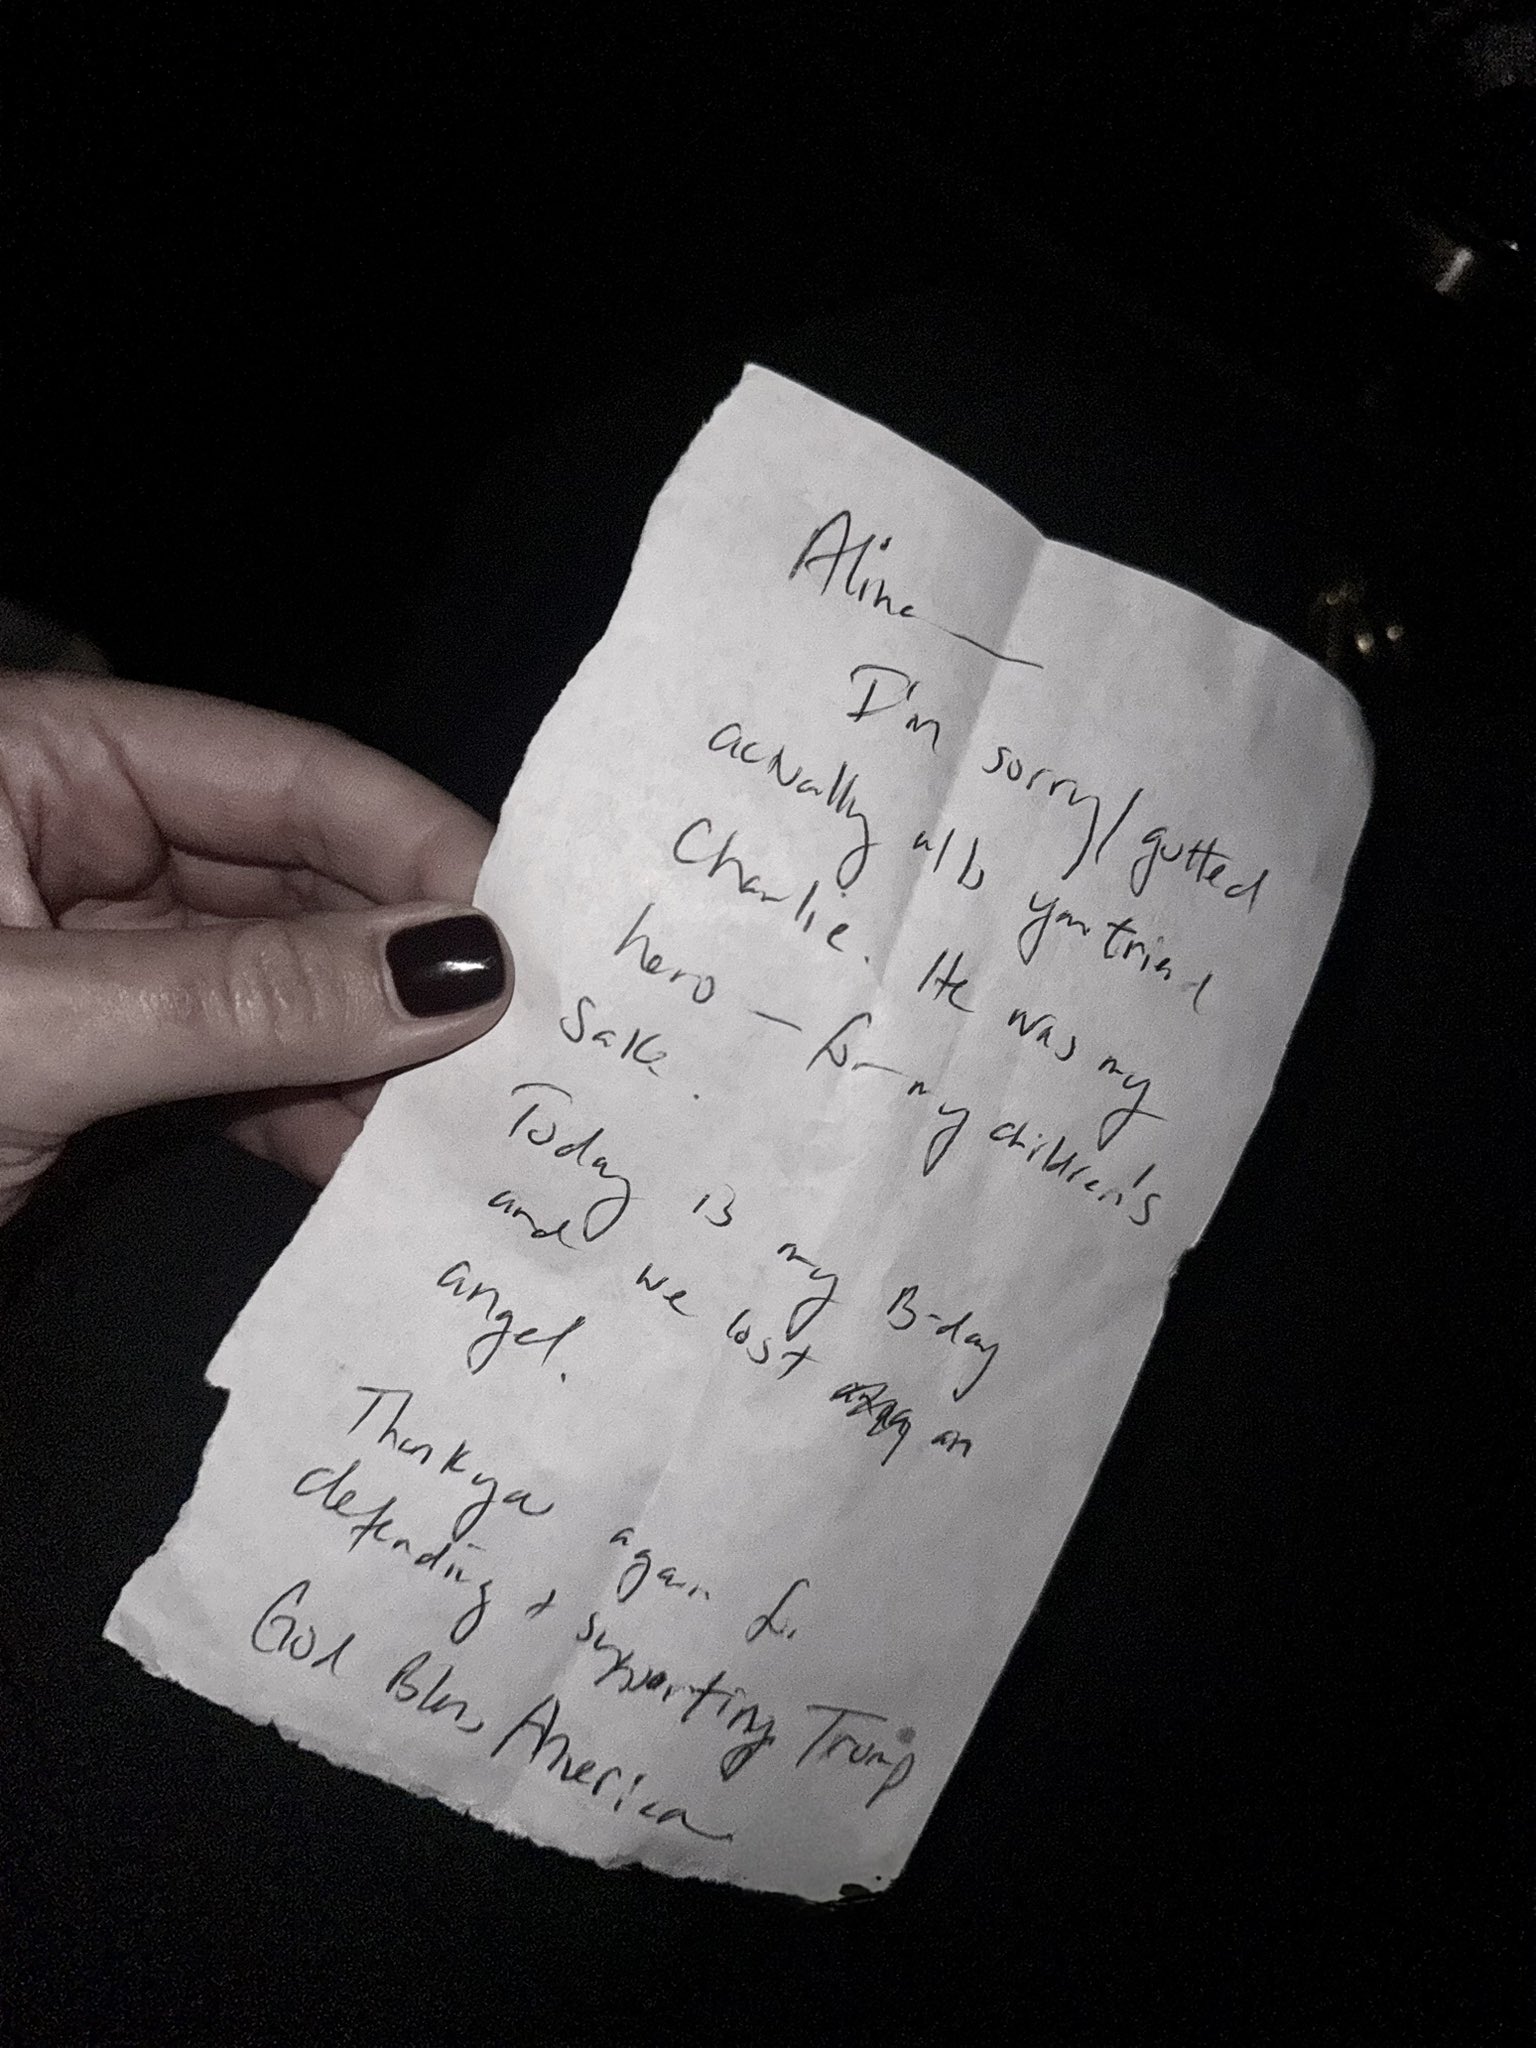 Alina
I'm sorry/gutted
actually a/b your friend
Charlie. He was my
hero – for my children's
sake.
Today is my B-day
and we lost an
angel.
Thank you again for
defending + supporting Trump
God Bless America